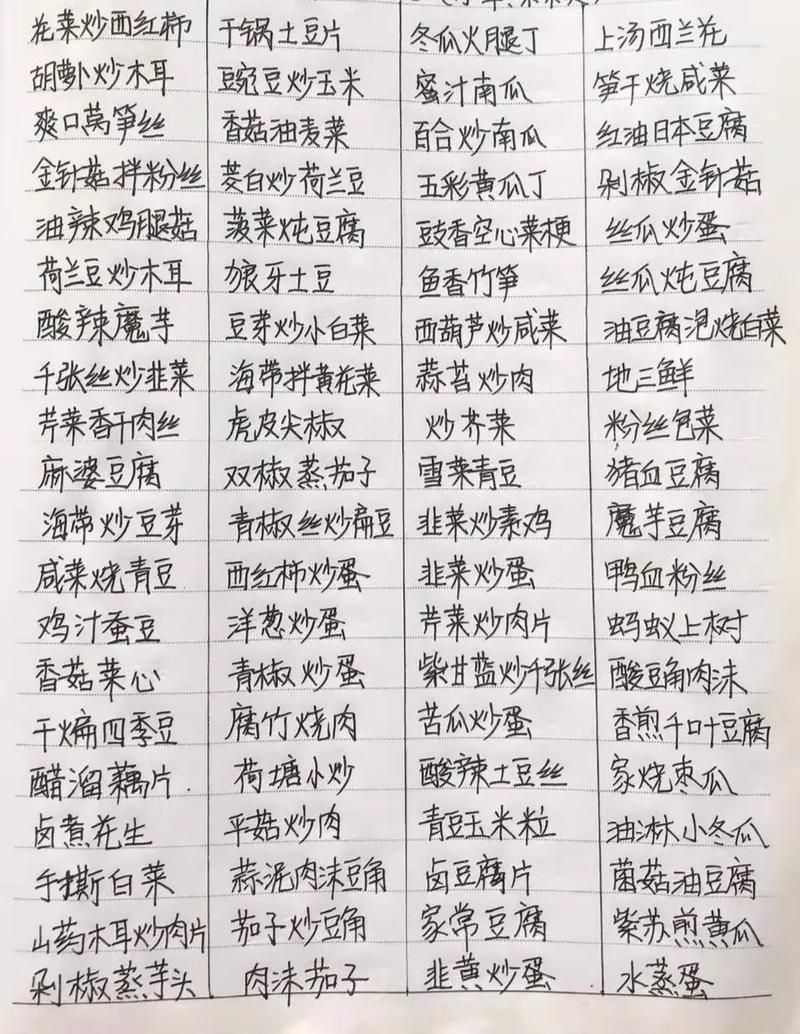 花菜炒西红柿 干锅土豆片 冬瓜火腿丁 上汤西兰花
胡萝卜炒木耳 豆豌豆炒玉米 蜜汁南瓜 笋干烧咸菜
爽口莴笋丝 香菇油麦菜 百合炒南瓜 红油日本豆腐
金针菇拌粉丝 茭白炒荷兰豆 五彩黄瓜丁 剁椒金针菇
油辣鸡腿菇 菠菜炖豆腐 豉香空心菜梗 丝瓜炒蛋
荷兰豆炒木耳 狼牙土豆 鱼香竹笋 丝瓜炖豆腐
酸辣魔芋 豆芽炒小白菜 西葫芦炒咸菜 油豆腐泡烧白菜
千张丝炒韭菜 海带拌黄花菜 蒜苔炒肉 地三鲜
芹菜香干肉丝 虎皮尖椒 炒芥菜 粉丝包菜
麻婆豆腐 双椒蒸茄子 雪菜青豆 猪血豆腐
海带炒豆芽 青椒丝炒扁豆 韭菜炒素鸡 魔芋豆腐
咸菜烧青豆 西红柿炒蛋 韭菜炒蛋 鸭血粉丝
鸡汁蚕豆 洋葱炒蛋 芹菜炒肉片 蚂蚁上树
香菇菜心 青椒炒蛋 紫甘蓝炒千张丝 酸豆角肉沫
干煸四季豆 腐竹烧肉 苦瓜炒蛋 香煎千叶豆腐
醋溜藕片. 荷塘小炒 酸辣土豆丝 家烧冬瓜
卤煮花生 平菇炒肉 青豆玉米粒 油淋小冬瓜
手撕白菜 蒜泥肉沫豆角 卤豆腐片 菌菇油豆腐
山药木耳炒肉片 茄子炒豆角 家常豆腐 紫苏煎黄瓜
剁椒蒸芋头 肉沫茄子 韭黄炒蛋 水蒸蛋